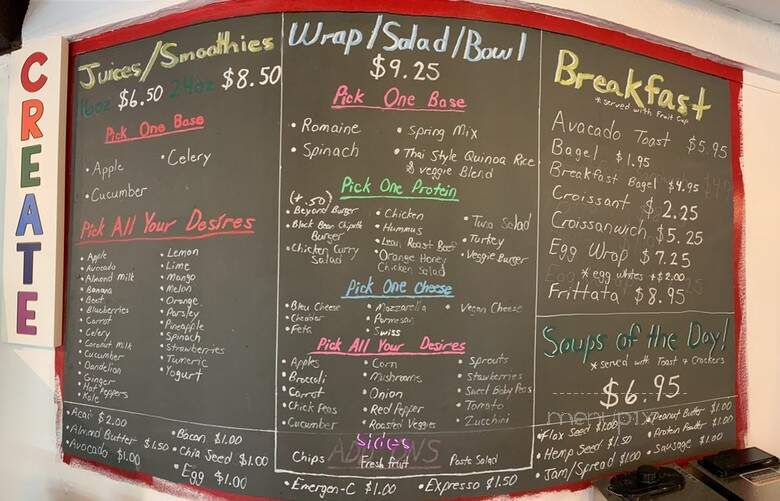 CREATE
Juices/Smoothies
16oz $6.50 24oz $8.50
Pick One Base
• Apple
• Celery
• Cucumber
Pick All Your Desires
• Apple
• Avocado
• Almond Milk
• Banana
• Beet
• Blueberries
• Carrot
• Celery
• Coconut Milk
• Cucumber
• Dandelion
• Ginger
• Hot Peppers
• Kale
• Lemon
• Lime
• Mango
• Melon
• Orange
• Parsley
• Pineapple
• Spinach
• Strawberries
• Tumeric
• Yogurt
Wrap/Salad/Bowl
$9.25
Pick One Base
• Romaine
• Spinach
• Spring Mix
• Thai Style Quinoa Rice
& veggie Blend
Pick One Protein
(+.50)
• Beyond Burger
• Black Bean Chipotle
Burger
• Chicken Curry
Salad
• Chicken
• Hummus
• Lean Roast Beef
• Orange Honey
Chicken Salad
• Tuna Salad
• Turkey
• Veggie Burger
Pick One Cheese
• Bleu Cheese
• Cheddar
• Feta
• Mozzarella
• Parmisan
• Swiss
• Vegan Cheese
Pick All Your Desires
• Apples
• Broccoli
• Carrot
• Chick Peas
• Cucumber
• Corn
• Mushrooms
• Onion
• Red Pepper
• Roasted Veggies
• Sprouts
• Strawberries
• Sweet Baby Peas
• Tomato
• Zucchini
Sides
Chips
Fresh fruit
Pasta Salad
Breakfast
* served with Fruit Cup
Avacado Toast $5.95
Bagel $1.95
Breakfast Bagel $4.95
Croissant $2.25
Croissanwich $5.25
Egg Wrap $7.25
* egg whites +$2.00
Frittata $8.95
Soups of the Day!
* served with Toast & Crackers
$6.95
menupix
ADD ONS
• Acai $2.00
• Almond Butter $1.50
• Avocado $1.00
• Bacon $1.00
• Chia Seed $1.00
• Egg $1.00
• Emergen-C $1.00
• Expresso $1.50
• Flax Seed $1.00
• Hemp Seed $1.50
• Jam/Spread $1.00
• Peanut Butter $1.00
• Protein Powder $1.00
• Sausage $1.00